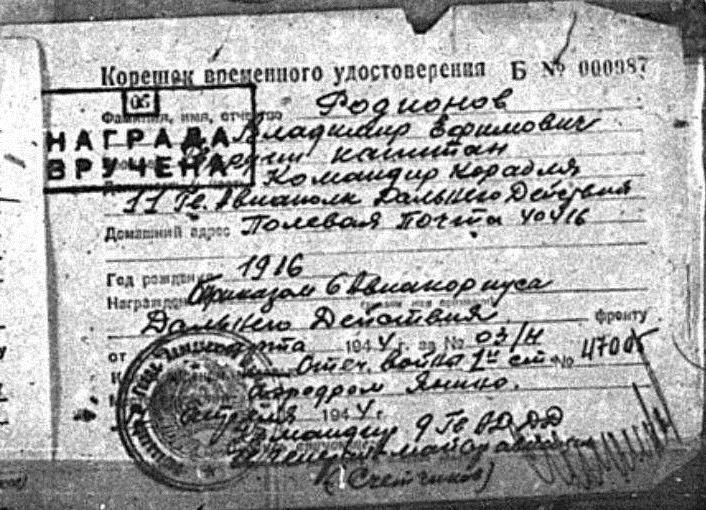 Корешок временного удостоверения Б № 000987
05
НАГРАДА
ВРУЧЕНА
Фамилия, имя, отчество Родионов
Владимир Ефимович
Гвардии капитан
Командир корабля
11 Гв. Авиаполк Дальнего Действия
Домашний адрес Полевая Почта 40416
Год рождения 1916
Награжден Приказом 6 Авиакорпуса
Дальнего Действия фронту
от марта 1944 г. за № 03/Н
Отеч. Война 1й ст № 47005
Аэродром
апреля 1944 г.
Командир 9 Гв АД ДД
Генерал-майор авиации
(Счетчиков)